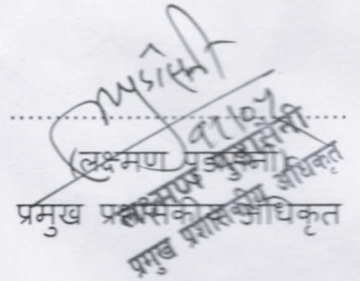 (लक्ष्मण पुडासैनी)
प्रमुख प्रशासकीय अधिकृत
लक्ष्मण पुडासैनी
प्रमुख प्रशासकीय अधिकृत